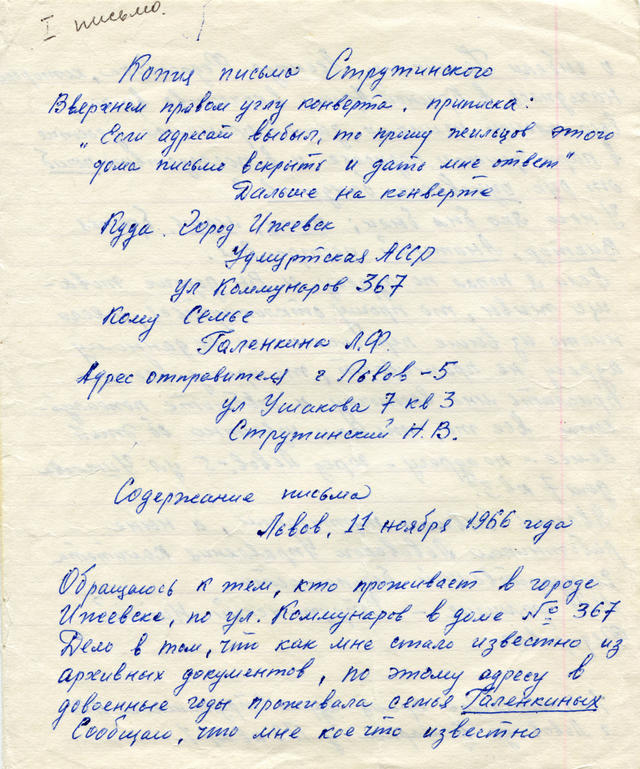 I письмо.
Копия письма Струтинского
Вверхнем правом углу конверта, приписка:
„Если адресат выбыл, то прошу жильцов этого
дома письмо вскрыть и дать мне ответ"
Дальше на конверте
Куда. Город Ижевск
Удмуртская АССР
ул Коммунаров 367
Кому Семье
Галенкина Л.Ф.
Адрес отправителя г Львов-5
ул Ушакова 7 кв 3
Струтинский Н.В.
Содержание письма
Львов, 11 ноября 1966 года
Обращаюсь к тем, кто проживает в городе
Ижевске, по ул. Коммунаров в доме № 367
Дело в том, что как мне стало известно из
архивных документов, по этому адресу в
довоенные годы проживала семья Галенкиных
Сообщаю, что мне кое что известно